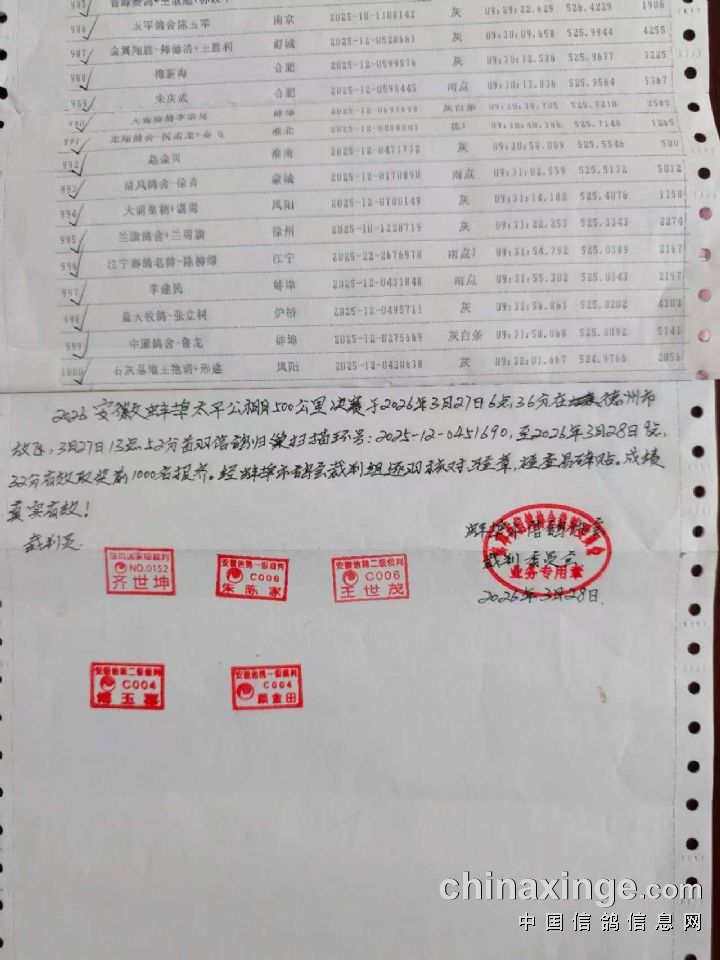 986 玉军鸽舍陈玉军 南京 2025-10-1108142 灰 09:29:22.629 526.4229 1906
987 金翼翔胜·郑德浩+王胜利 舒城 2025-12-0528661 灰 09:30:09.658 525.9944 4255
988 梅新海 合肥 2025-12-0599576 灰 09:30:12.586 525.9677 3225
989 朱庆武 合肥 2025-12-0598445 雨点 09:30:13.836 525.9564 5367
990 蚌埠 灰白条 09:30:39.705 525.7210 3585
991 淮北 09:30:40.386 525.7148 1265
992 赵金贝 淮南 2025-12-0471732 灰 09:30:58.009 525.5546 500
993 清风鸽舍-徐青 蒙城 2025-12-0170890 雨点 09:31:02.559 525.5132 5012
994 凤阳 2025-12-0700149 灰 09:31:14.182 525.4076 1158
995 兰旗鸽舍+兰勇旗 徐州 2025-10-1228719 灰 09:31:22.253 525.3343 2274
996 江宁赛鸽老帅-陈柳绿 江宁 2025-22-2676978 雨点 09:31:54.792 525.0389 2167
997 李建民 蚌埠 2025-12-0431848 雨点 09:31:55.302 525.0343 2157
998 益天牧鸽-张立柯 炉桥 2025-12-0495711 灰 09:31:56.861 525.0202 4303
999 中原鸽舍-鲁龙 蚌埠 2025-12-0275669 灰白条 09:31:58.068 525.0092 5141
1000 石灰基地王艳萌+邢建 凤阳 2025-12-0430638 灰 09:32:01.667 524.9766 2056
2026安徽蚌埠太平公棚500公里决赛于2026年3月27日6点36分在德州市
放飞，3月27日13点52分首羽信鸽归巢扫描环号：2025-12-0451690，至2026年3月28日9点
32分有效取奖前1000名报齐。经蚌埠市鸽会裁判组逐羽核对，验章，检查易碎贴。成绩
真实有效！
裁判员
蚌埠市信鸽协会
裁判委员会
业务专用章
2026年3月28日
信鸽国家级裁判
NO.0152
齐世坤
安徽信鸽一级裁判
C006
朱陈家
安徽信鸽二级裁判
C006
王世茂
安徽信鸽二级裁判
C004
安徽信鸽一级裁判
C004
顾金田
chinaxinge.com
中国信鸽信息网